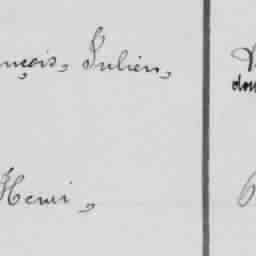 nçois, Julien,
don
Henri,